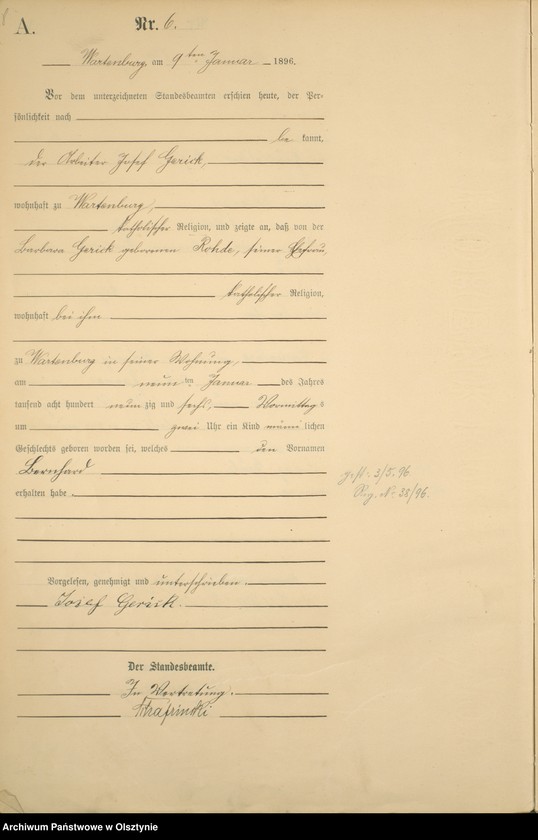 A.
Nr. 6.
Wartenburg, am 9ten Januar 1896.
Vor dem unterzeichneten Standesbeamten erschien heute, der Per-
sönlichkeit nach
be kannt,
der Arbeiter Josef Gerick,
wohnhaft zu Wartenburg,
katholischer Religion, und zeigte an, daß von der
Barbara Gerick geborenen Rohde, seiner Ehefrau,
katholischer Religion,
wohnhaft bei ihm
zu Wartenburg in seiner Wohnung,
am neun ten Januar des Jahres
tausend acht hundert neun zig und sechs, Vormittag s
um zwei Uhr ein Kind männ lichen
Geschlechts geboren worden sei, welches den Vornamen
Bernhard
gest. 3/5. 96
erhalten habe
Reg. Nr. 38/96.
Vorgelesen, genehmigt und unterschrieben.
Josef Gerick.
Der Standesbeamte.
In Vertretung.
Archiwum Państwowe w Olsztynie